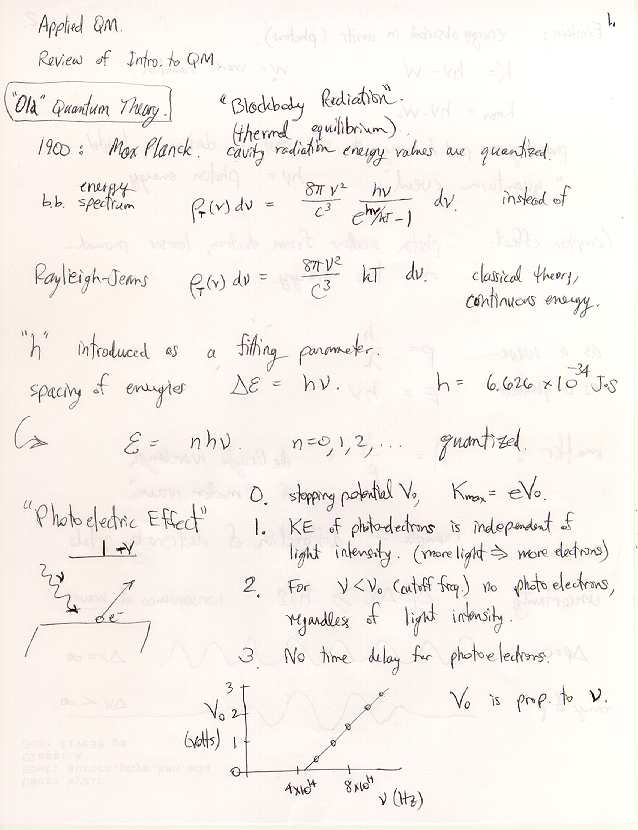 1.
Applied QM.
Review of Intro. to QM
"Old" Quantum Theory.
"Blackbody Radiation".
(thermal equilibrium).
1900: Max Planck. cavity radiation energy values are quantized.
b.b. energy spectrum ρ_T(ν)dν = 8πν²/c³ hν/(e^{hν/kT}-1) dν. instead of
Rayleigh-Jeans ρ_T(ν)dν = 8πν²/c³ kT dν. classical theory,
continuous energy.
"h" introduced as a fitting parameter.
spacing of energies ΔE = hν. h = 6.626 × 10^-34 J·s
↳ E = nhν. n=0,1,2,... quantized.
"Photoelectric Effect"
0. stopping potential V₀, Kmax = eV₀.
1. KE of photo-electrons is independent of
light intensity. (more light ⇒ more electrons)
2. For ν<ν₀ (cutoff freq.) no photoelectrons,
regardless of light intensity.
3. No time delay for photoelectrons.
-V
ν
e⁻
V₀
(volts)
3
2
1
0
4×10¹⁴ 8×10¹⁴
ν (Hz)
V₀ is prop. to ν.